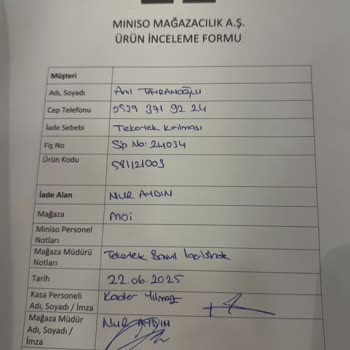 MINISO MAĞAZACILIK A.Ş.
ÜRÜN İNCELEME FORMU
Müşteri
Adı, Soyadı Anıl
Cep Telefonu 0539 371 92 24
İade Sebebi Tekerlek Kırılması
Fiş No Sp No: 24034
Ürün Kodu 581121003
İade Alan NUR AYDIN
Mağaza moi
Miniso Personel
Notları
Mağaza Müdürü
Notları Tekerlek
Tarih 22.06.2025
Kasa Personeli
Adı, Soyadı / İmza Kader Yılmaz
Mağaza Müdür
Adı, Soyadı /
İmza NUR AYDIN